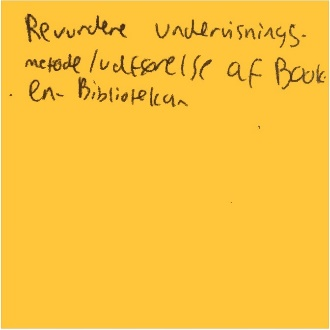 Revurdere undervisnings-
metode/udførelse af Book-
en-Bibliotekar